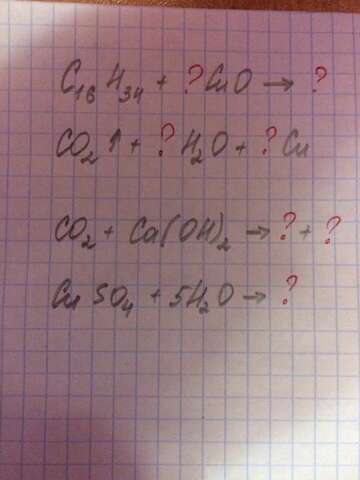 C₁₆H₃₄ + ?CuO → ?
CO₂↑ + ?H₂O + ?Cu
CO₂ + Ca(OH)₂ → ? + ?
CuSO₄ + 5H₂O → ?